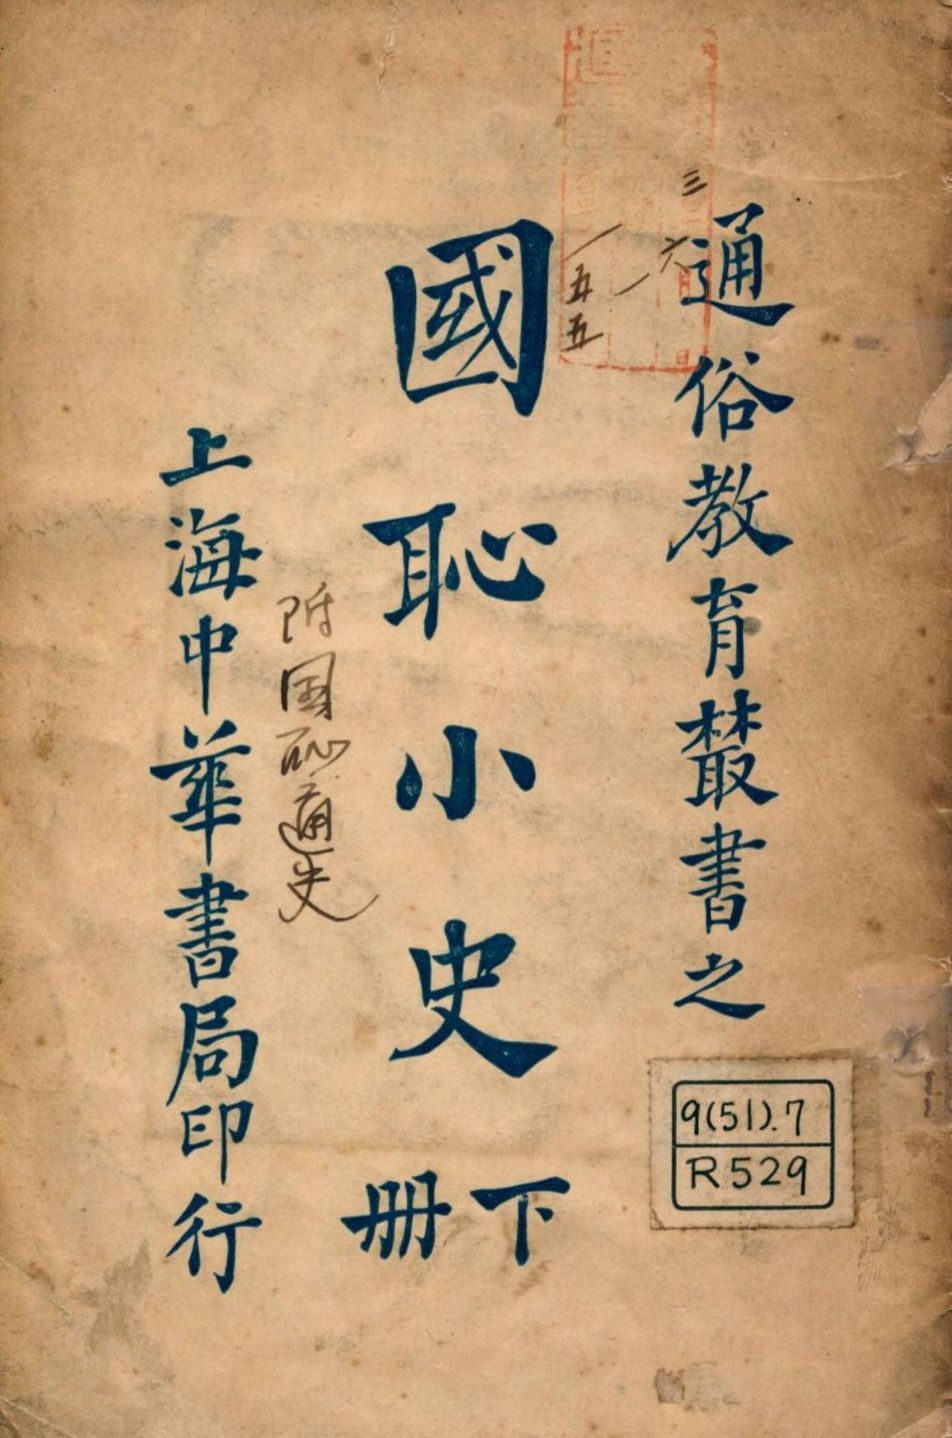 通俗教育叢書之
國恥小史
下册
附国恥通史
上海中華書局印行
三
六
一五五
9(51).7
R529